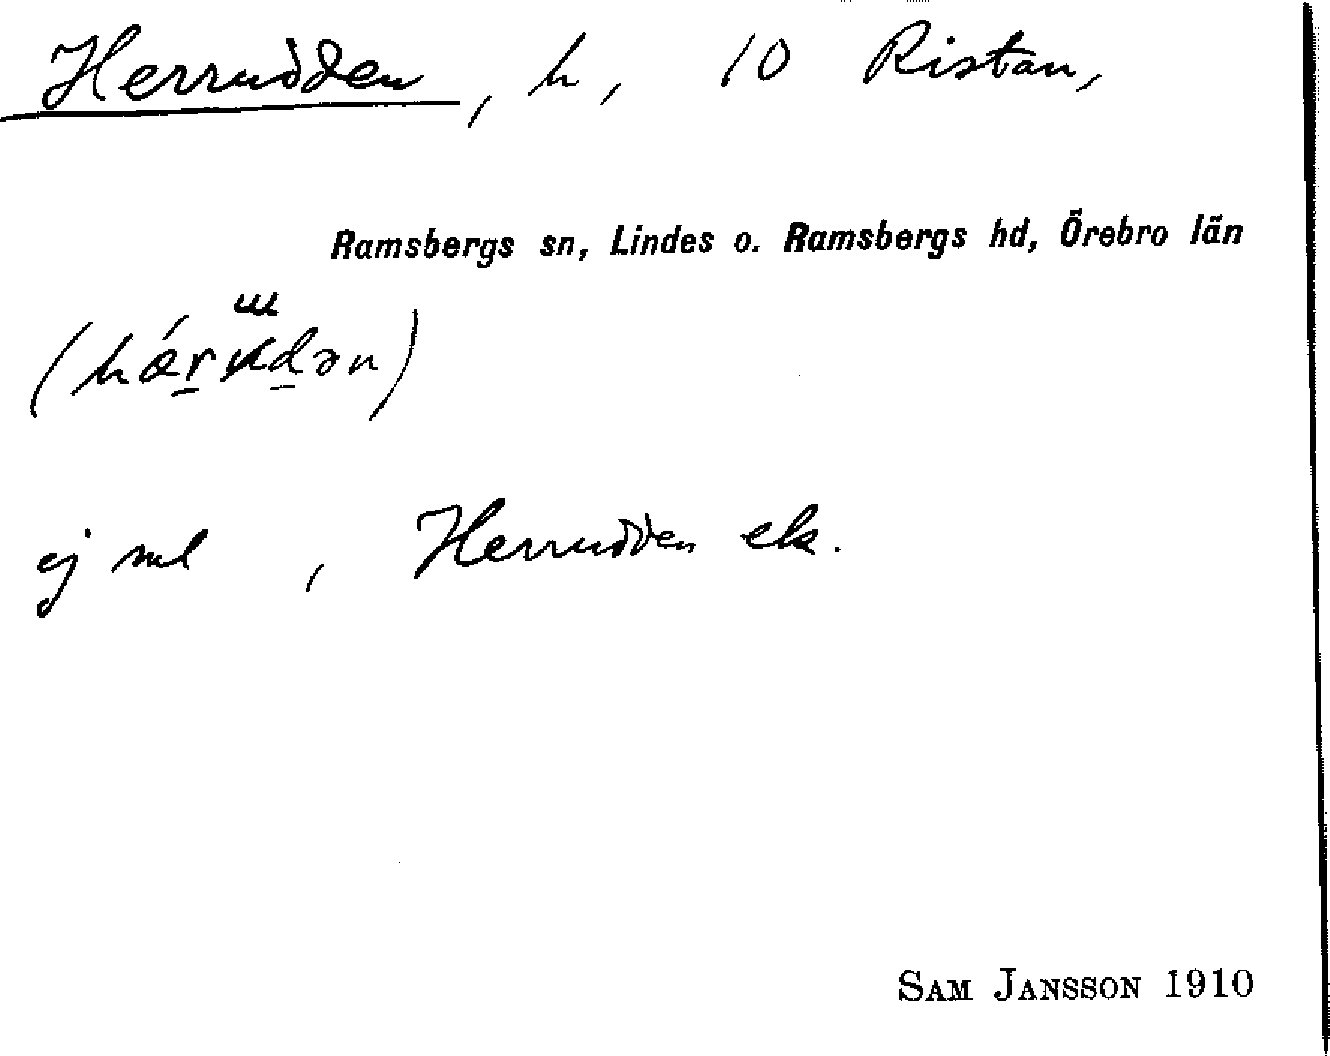 Herrudden, h, 10 Ristan,
Ramsbergs sn, Lindes o. Ramsbergs hd, Örebro län
ej sml, Herrudden ek.
SAM JANSSON 1910